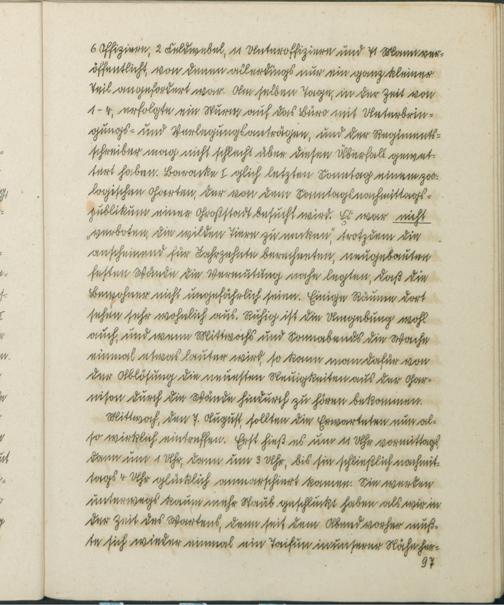 6 Offizieren, 2 Feldwebel, 11 Unteroffiziere und 71 Mann ver-
öffentlicht, von denen allerdings nur ein ganz kleiner
Teil angefordert war. Am selben Tage, in der Zeit von
1-4, erfolgte ein Sturm auf das Büro mit Unterbrin-
gungs- und Verlegungsanträgen, und der Regiments-
schreiber mag nicht schlecht über diesen Überfall gewet-
tert haben. Baracke I glich letzten Sonntag einem zoo-
logischen Garten, der von dem Sonntagnachmittags-
publikum einer Großstadt besucht wird. Es war nicht
„verboten, die wilden Tiere zu necken," trotzdem die
anscheinend für Jahrzehnte berechneten, neugebauten
festen Wände die Vermutung nahe legten, daß die
Bewohner nicht ungefährlich seien. Einige Räume dort
sehen sehr wohnlich aus. Ruhig ist die Umgebung wohl
auch, und wenn Mittwochs und Sonnabends die Wache
einmal etwas lauter wird, so kann man dafür von
der Ablösung die neuesten Neuigkeiten aus der Gar-
nison durch die Wände hindurch zu hören bekommen.
Mittwoch, den 7. August sollten die Erwarteten nun al-
so wirklich eintreffen. Erst hieß es um 11 Uhr vormittags
dann um 1 Uhr, dann um 3 Uhr, bis sie schließlich nachmit-
tags 4 Uhr glücklich anmarschiert kamen. Sie werden
unterwegs kaum mehr Staub geschluckt haben als wir in
der Zeit des Wartens, denn seit dem Abend vorher mußte
te sich wieder einmal ein Taifun in unserer Nähe her-
97